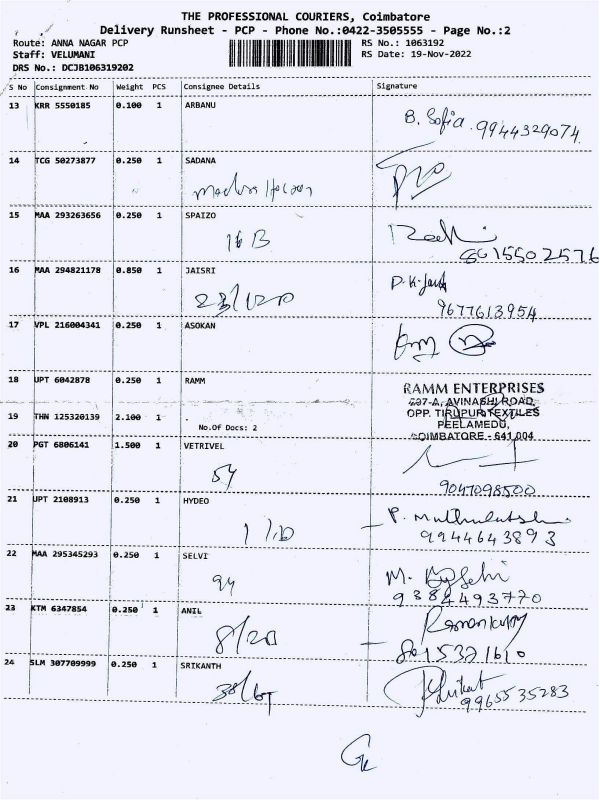 THE PROFESSIONAL COURIERS, Coimbatore
Delivery Runsheet - PCP - Phone No.:0422-3505555 - Page No.:2
Route: ANNA NAGAR PCP
RS No.: 1063192
Staff: VELUMANI
RS Date: 19-Nov-2022
DRS No.: DCJB106319202
S No Consignment No Weight PCS Consignee Details Signature
13 KRR 5550185 0.100 1 ARBANU
B. Sofia 9944329074
14 TCG 50273877 0.250 1 SADANA
15 MAA 293263656 0.250 1 SPAIZO
16 B
8015502576
16 MAA 294821178 0.850 1 JAISRI
23/120
9677613954
17 VPL 216004341 0.250 1 ASOKAN
18 UPT 6042878 0.250 1 RAMM
RAMM ENTERPRISES
597-A, AVINASHI ROAD,
OPP. TIRUPUR TEXTILES
PEELAMEDU,
COIMBATORE - 641 004
19 THN 125320139 2.100 1
No.Of Docs: 2
20 PGT 6806141 1.500 1 VETRIVEL
54
9047098500
21 UPT 2108913 0.250 1 HYDEO
P.
9944643893
22 MAA 295345293 0.250 1 SELVI
94
M.
9384493770
23 KTM 6347854 0.250 1 ANIL
8/20
8015321610
24 SLM 307709999 0.250 1 SRIKANTH
38/67
9965535283